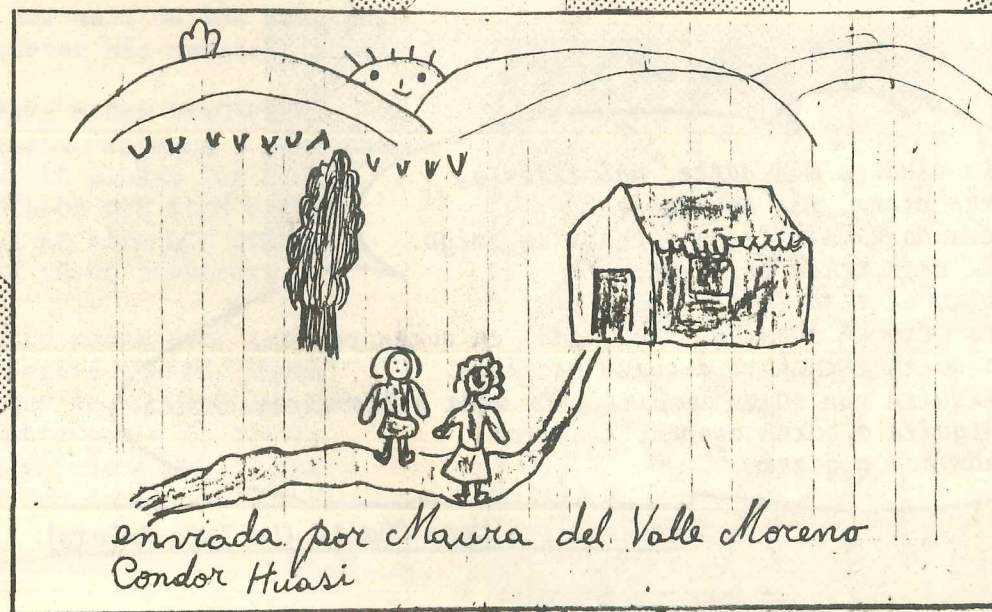 enviada por Maura del Valle Moreno
Condor Huasi